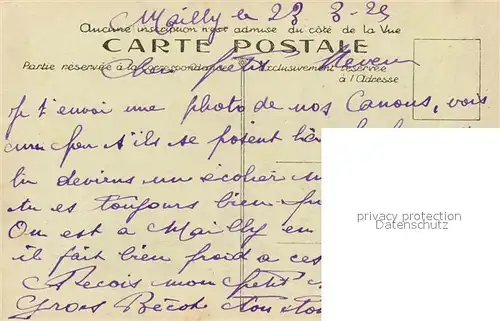 Mailly le 23 3-29
Aucune inscription n'est admise du côté de la Vue
CARTE POSTALE
Partie réservée à la correspondance
Exclusivement réservée
à l'Adresse
Cher petit Neveu
Je t'envoi une photo de nos Canons, vois
un peu s'ils se posent
tu deviens un écolier
tu es toujours bien
On est a Mailly en
il fait bien froid a ces
Recois mon petit
Gros Bécot ton
privacy protection
Datenschutz